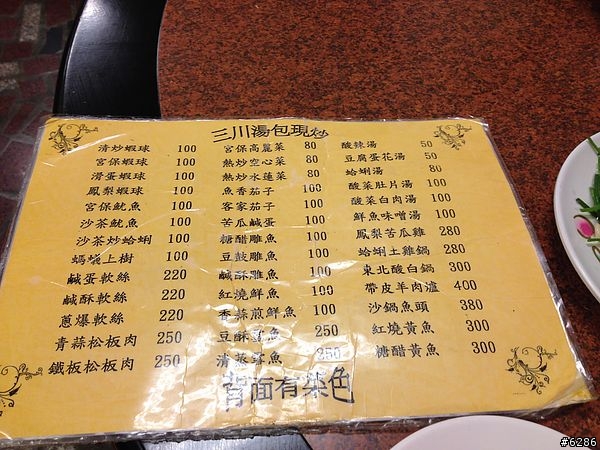 三川湯包現炒
清炒蝦球 100
宮保蝦球 100
滑蛋蝦球 100
鳳梨蝦球 100
宮保魷魚 100
沙茶魷魚 100
沙茶炒蛤蜊 100
螞蟻上樹 100
鹹蛋軟絲 220
鹹酥軟絲 220
蔥爆軟絲 220
青蒜松板肉 250
鐵板松板肉 250
宮保高麗菜 80
熱炒空心菜 80
熱炒水蓮菜 80
魚香茄子 100
客家茄子 100
苦瓜鹹蛋 100
糖醋雕魚 100
豆鼓雕魚 100
鹹酥雕魚 100
紅燒鮮魚 100
香蒜煎鮮魚 100
豆酥鱈魚 250
清蒸鱈魚 250
酸辣湯 50
豆腐蛋花湯 50
蛤蜊湯 80
酸菜肚片湯 100
酸菜白肉湯 100
鮮魚味噌湯 100
鳳梨苦瓜雞 280
蛤蜊土雞鍋 280
東北酸白鍋 300
帶皮羊肉爐 400
沙鍋魚頭 380
紅燒黃魚 300
糖醋黃魚 300
背面有菜色
#6286